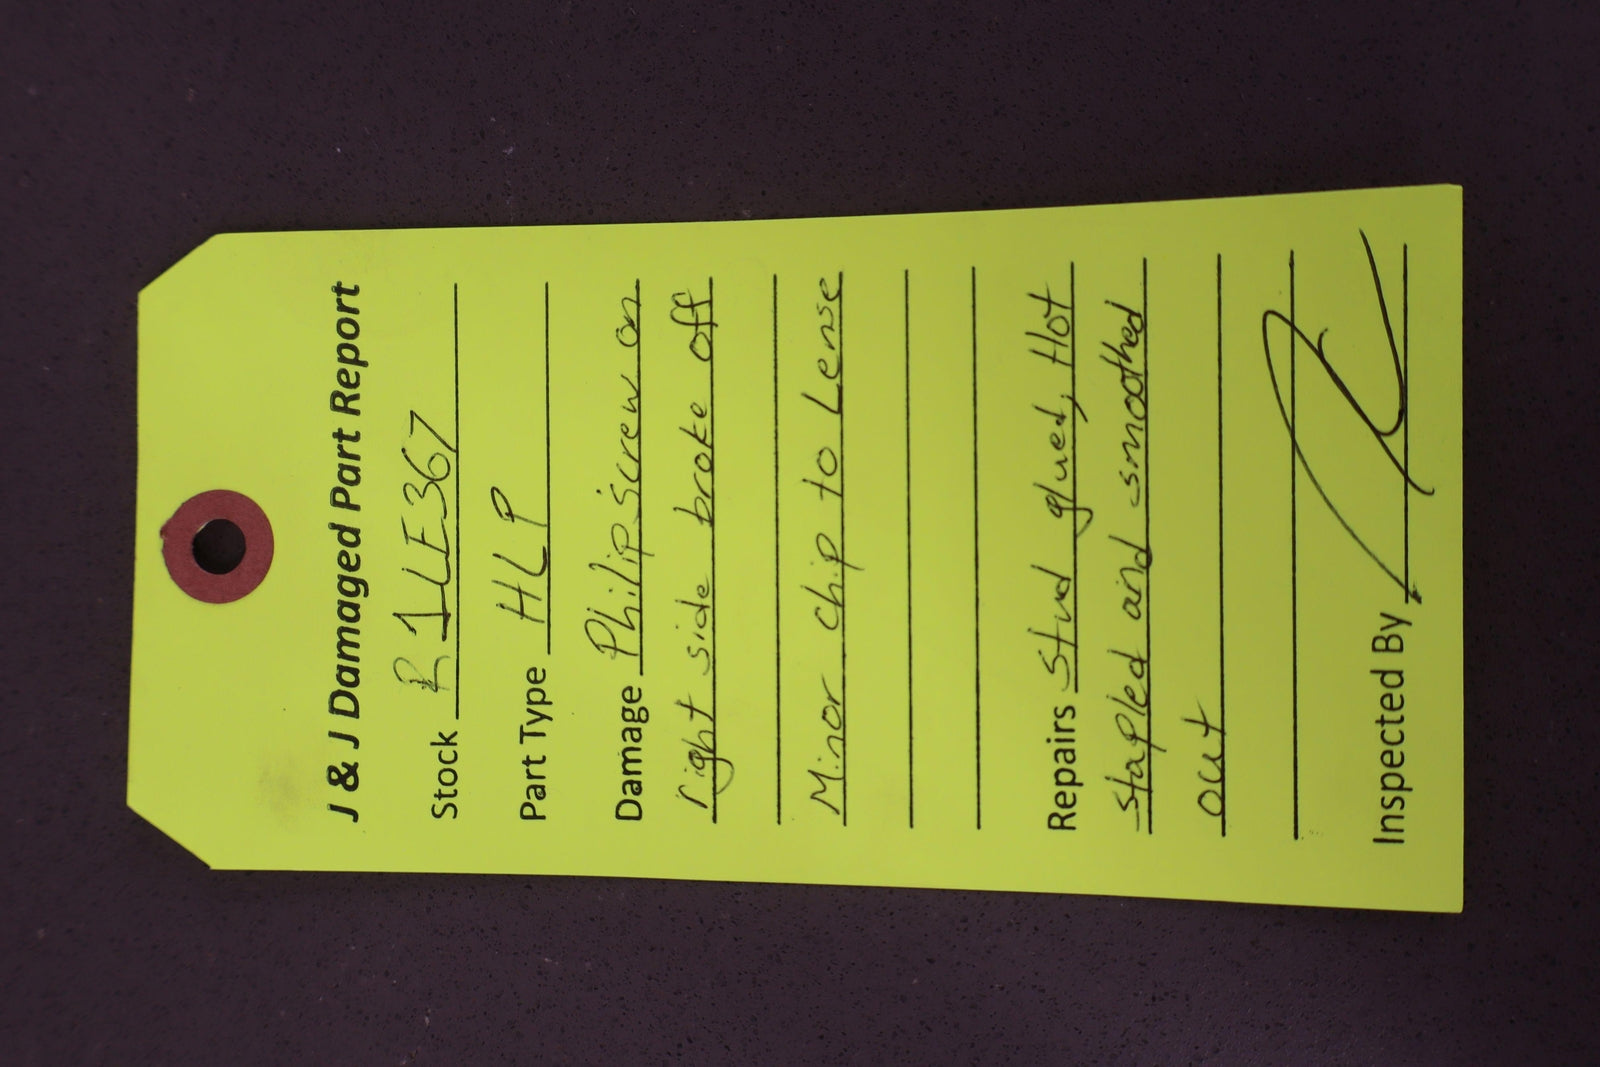 J & J Damaged Part Report
Stock R1LE367
Part Type HLP
Damage Philip screw on
right side broke off
Minor chip to Lense
Repairs Stud glued, Hot
stapled and smoothed
out
Inspected By